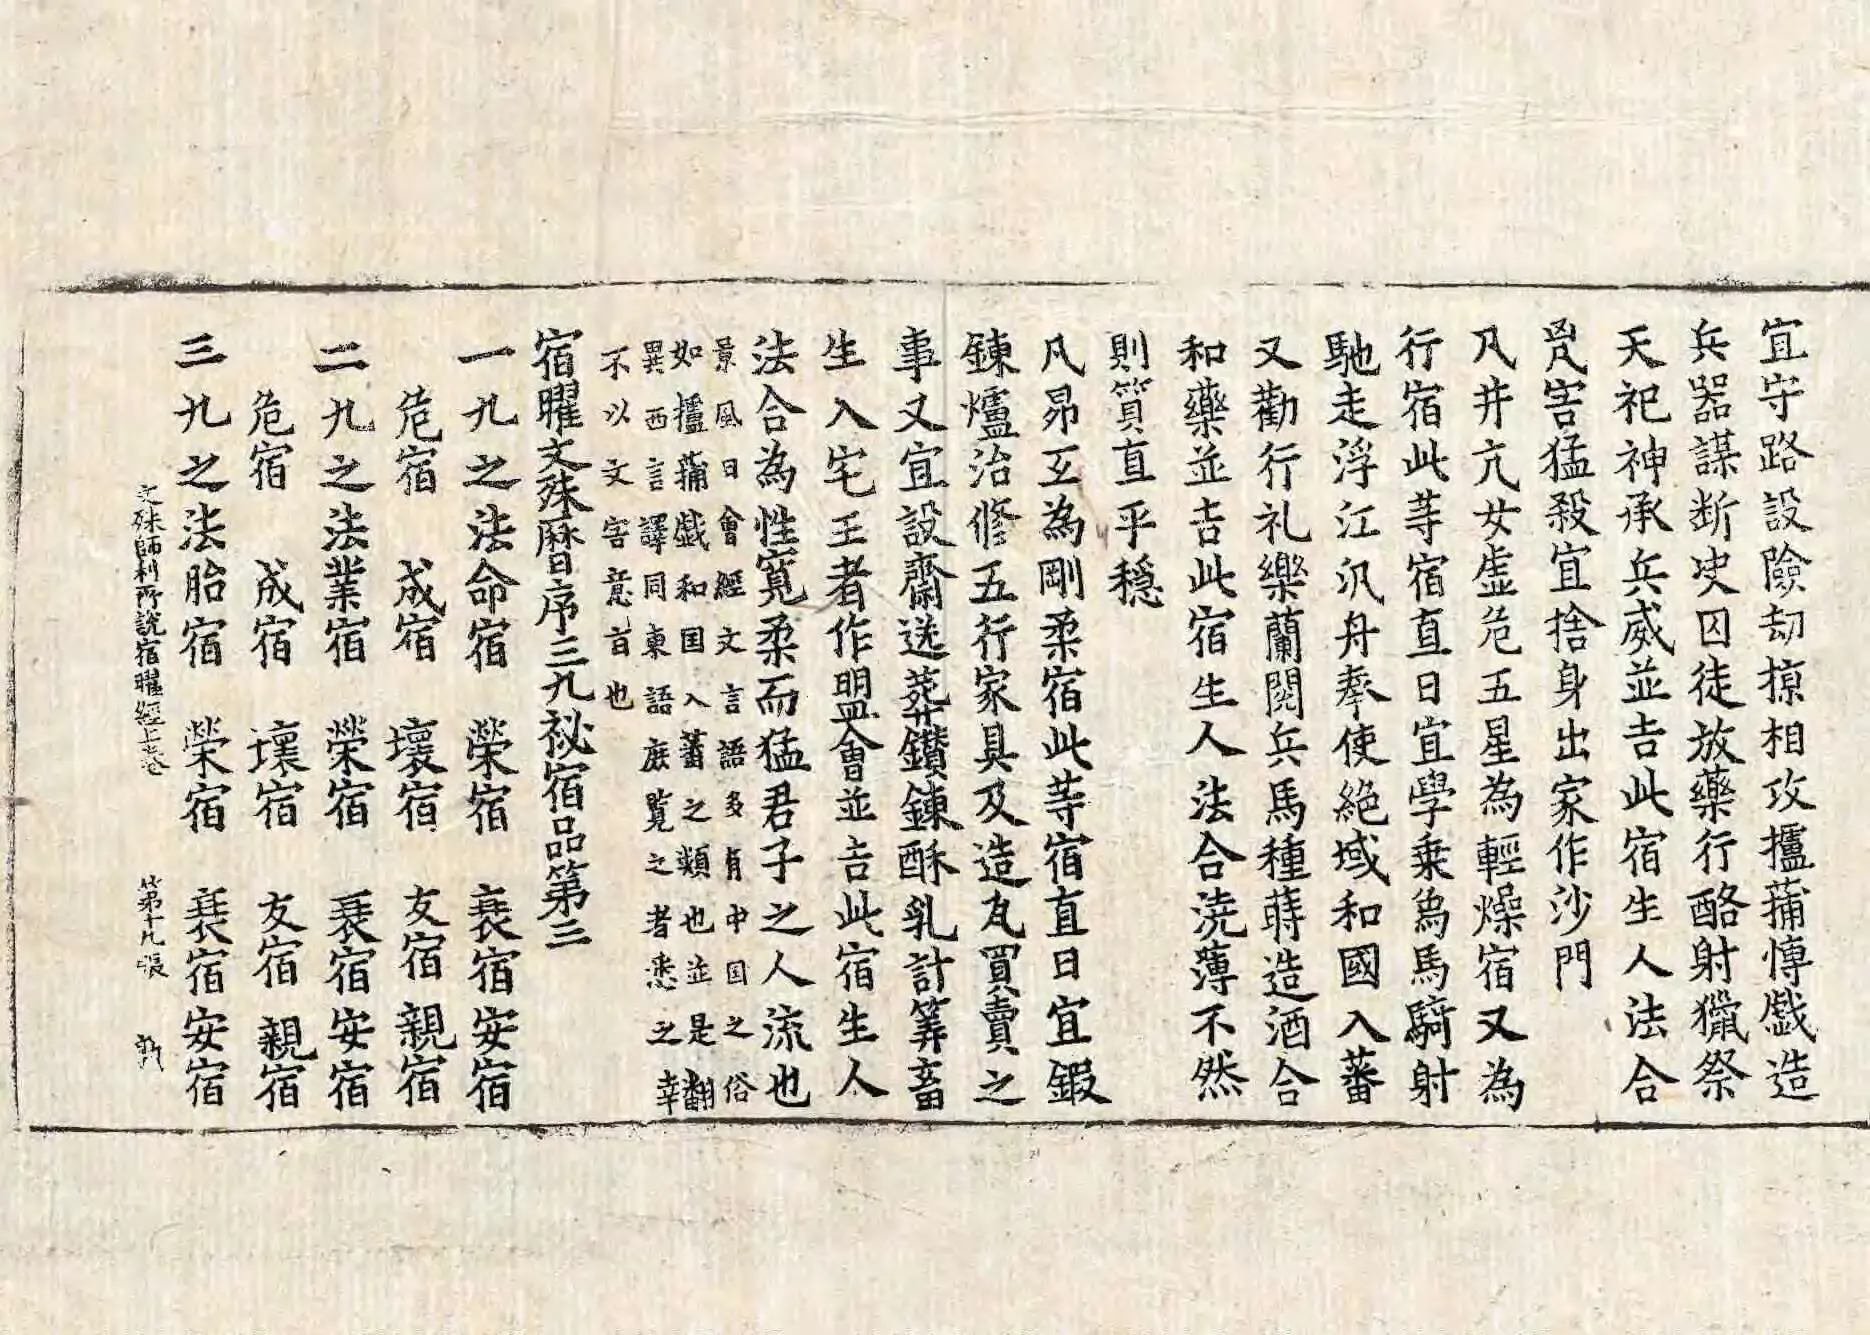 宜守路設險劫掠相攻攎蒱愽戱造
兵器謀断决囚徒放藥行酪射獵祭
天祀神承兵威並吉此宿生人法合
㐫害猛殺宜捨身出家作沙門
凡井亢女虛危五星為輕燥宿又為
行宿此䒭宿直日宜學乗馬騎射
馳走浮江汎舟奉使絶域和國入蕃
又勸行礼樂蘭閱兵馬種蒔造酒合
和藥並吉此宿生人法合澆薄不然
則質直平穩
凡昴氐為剛柔宿此䒭宿直日宜鍜
鍊爐治修五行家具及造瓦買賣之
事又宜設齋送葬鑚鍊酥乳計筭畜
生入宅王者作盟會並吉此宿生人
法合為性寬柔而猛君子之人流也
景風日會經文言語多有中国之俗
如攎蒱戱和国入蕃之類也並是翻
異西言譯同東語庻覧之者悉之幸
不以文害意首也
宿曜文殊曆序三九祕宿品第三
一九之法命宿 榮宿 衰宿安宿
危宿 成宿 壞宿 友宿 親宿
二九之法業宿 榮宿 衰宿安宿
危宿 成宿 壞宿 友宿 親宿
三九之法胎宿 榮宿 衰宿安宿
文殊師利所說宿曜經上卷 第十九張